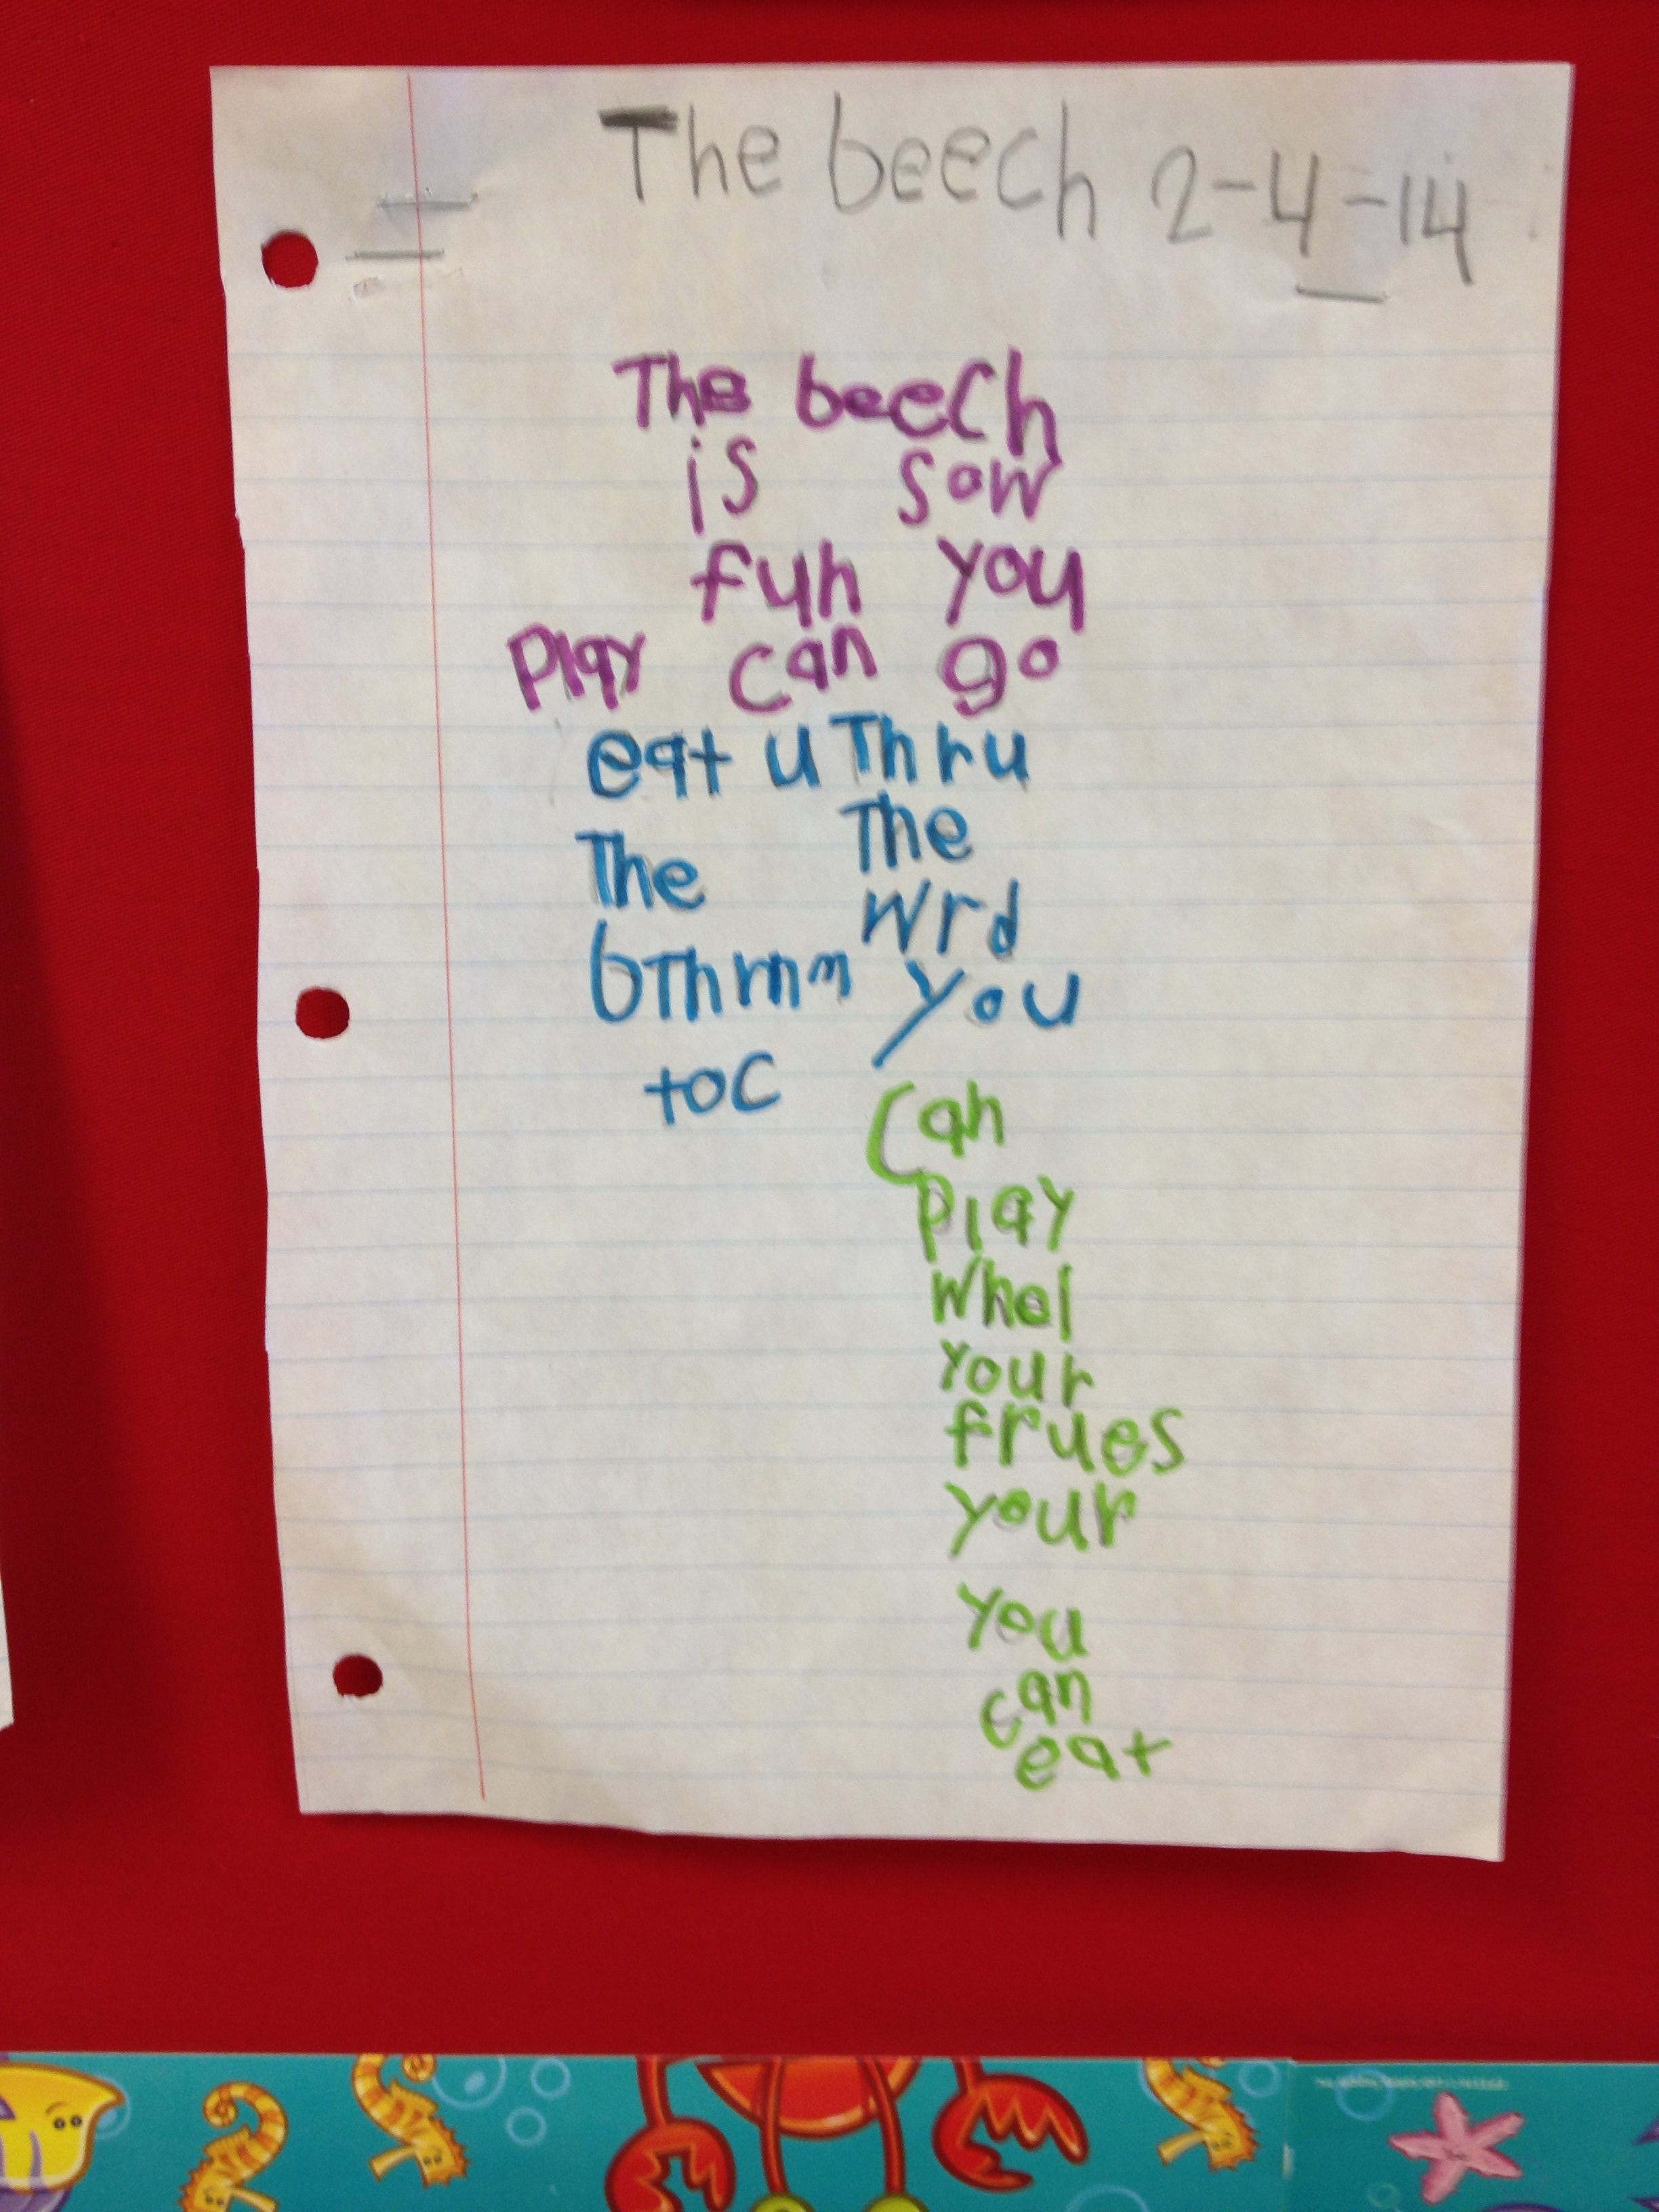 The beech 2-4-14
The beech
is sow
fun you
play can go
eat u Thru
The The
wrd
bThrnm you
toc
Can
play
whel
your
frues
your
you
can
eat